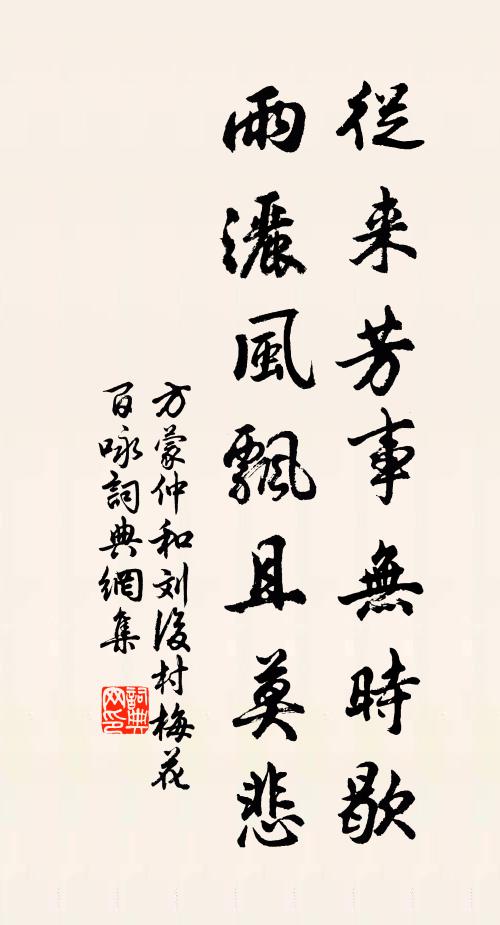 從来芳事無時歇
雨灑風飄且莫悲
方蒙仲和刘後村梅花
百咏詞典網集
詞典
网印